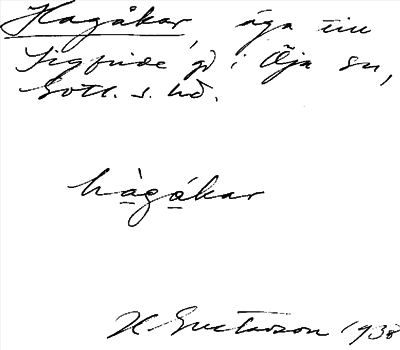 Hagåkar, äga till
Sigfride gd i Öja sn,
Gotl. s. hd.
hàgåkar
H Gustavson 1938